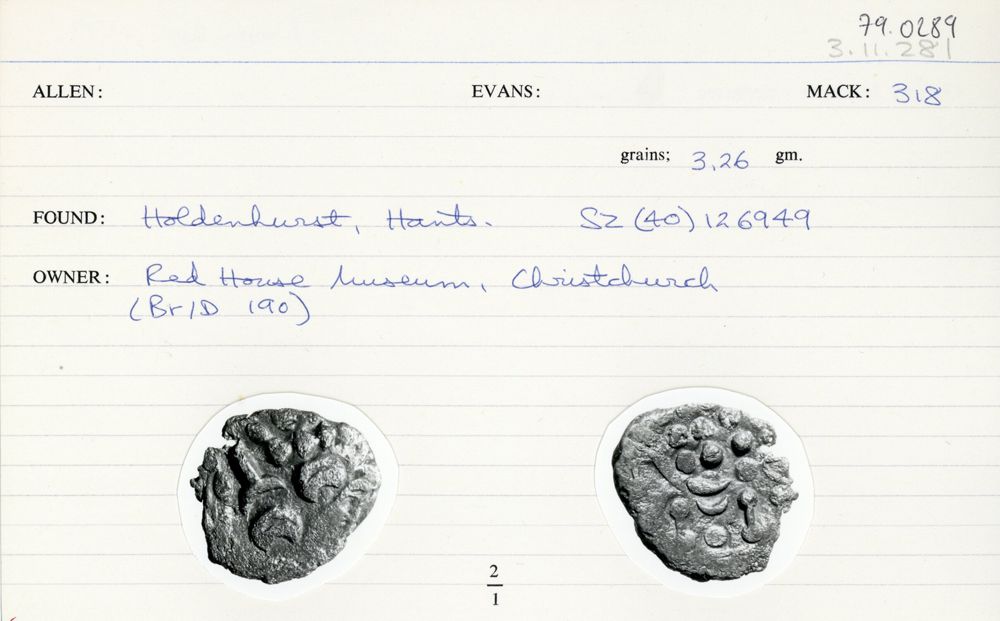 79.0289
3.11.281
ALLEN: EVANS: MACK: 318
grains; 3.26 gm.
FOUND: Holdenhurst, Hants. SZ (40) 126949
OWNER: Red House Museum, Christchurch
(Br/D 190)
2
1